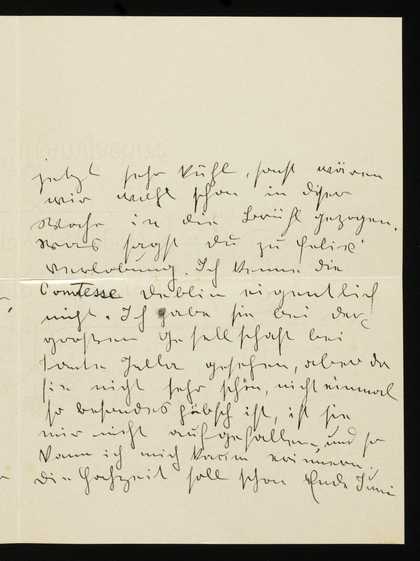 jetzt sehr kühl, sonst wären
wir wohl schon in dieser
Woche in die Brühl gezogen.
Was sagst du zu Felix'
Verlobung. Ich kenne die
Comtesse eigentlich
nicht. Ich habe sie bei der
grossen Gesellschaft bei
Tante Jella gesehen, aber da
sie nicht sehr schön, nicht einmal
so besondes hübsch ist, ist sie
mir nicht aufgefallen, und so
kann ich mich kaum erinnern.
Die Hochzeit soll schon Ende Juni